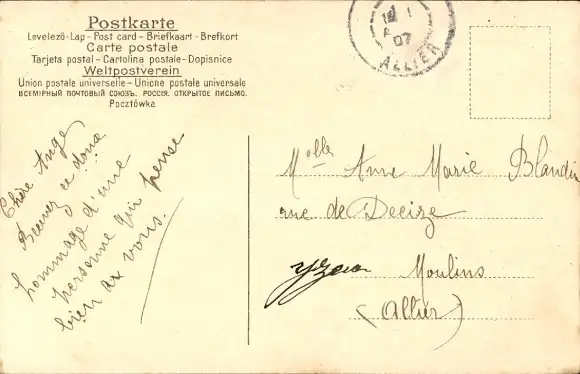 Postkarte
Levelező-Lap - Post card - Briefkaart - Brefkort
Carte postale
Tarjeta postal - Cartolina postale - Dopisnice
Weltpostverein
Union postale universelle - Unione postale universale
ВСЕМІРНЫЙ ПОЧТОВЫЙ СОЮЗЪ. РОССІЯ. ОТКРЫТОЕ ПИСЬМО.
Pocztówka.
07
ALLIER
Chère Ange
Recevez ce doux
hommage d'une
personne qui pense
bien ax vous.
Melle Anne Marie Blandin
rue de Decize
Moulins
(Allier)